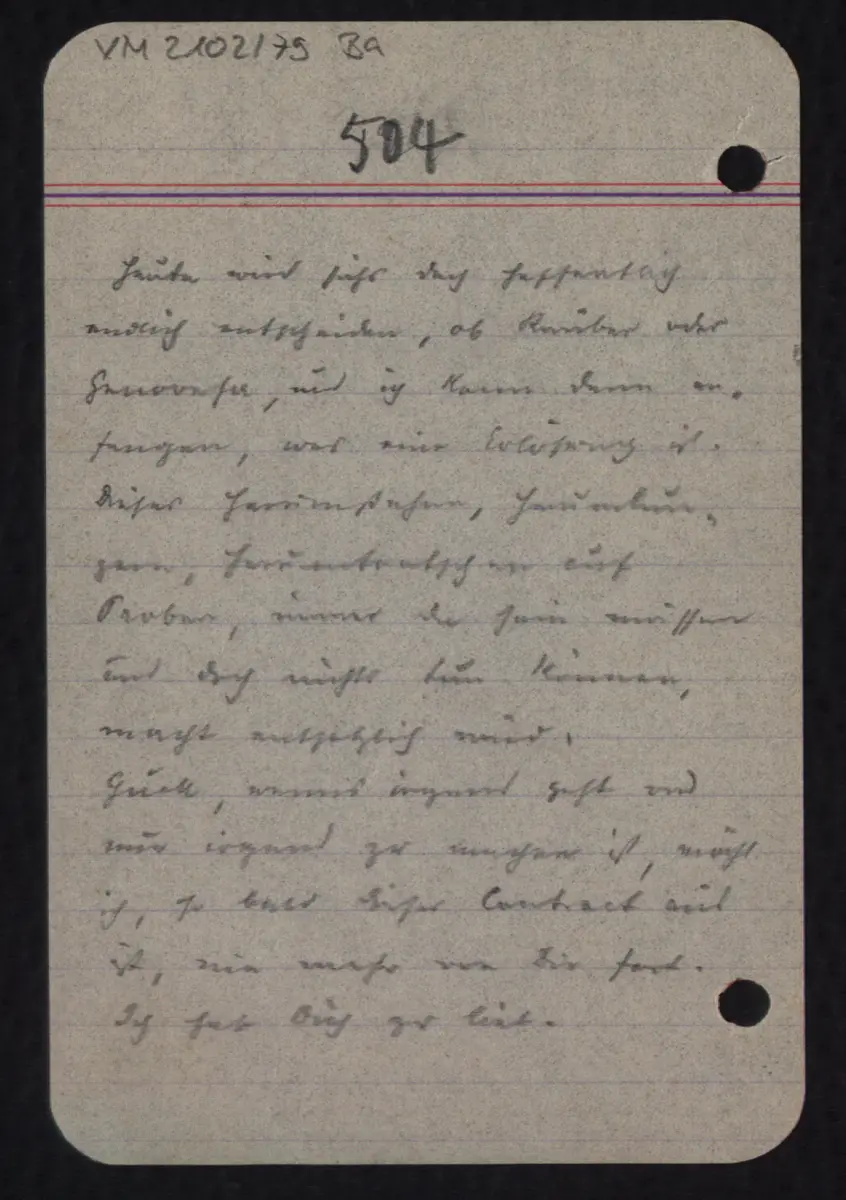 VM 2102/79 Ba
504
Heute wird sichs doch hoffentlich
endlich entscheiden, ob Räuber oder
Genovefa, und ich kann dann an-
fangen, was eine Erlösung ist.
Dieses Herumstehen, Herumlun-
gern, Herumtratschen auf
Proben, immer da sein müssen
und doch nichts tun können,
macht entsetzlich müd.
Guck, wenns irgend geht und
nur irgend zu machen ist, möcht
ich, so bald dieser Contract aus
ist, nie mehr von Dir fort.
Ich hab Dich zu lieb.